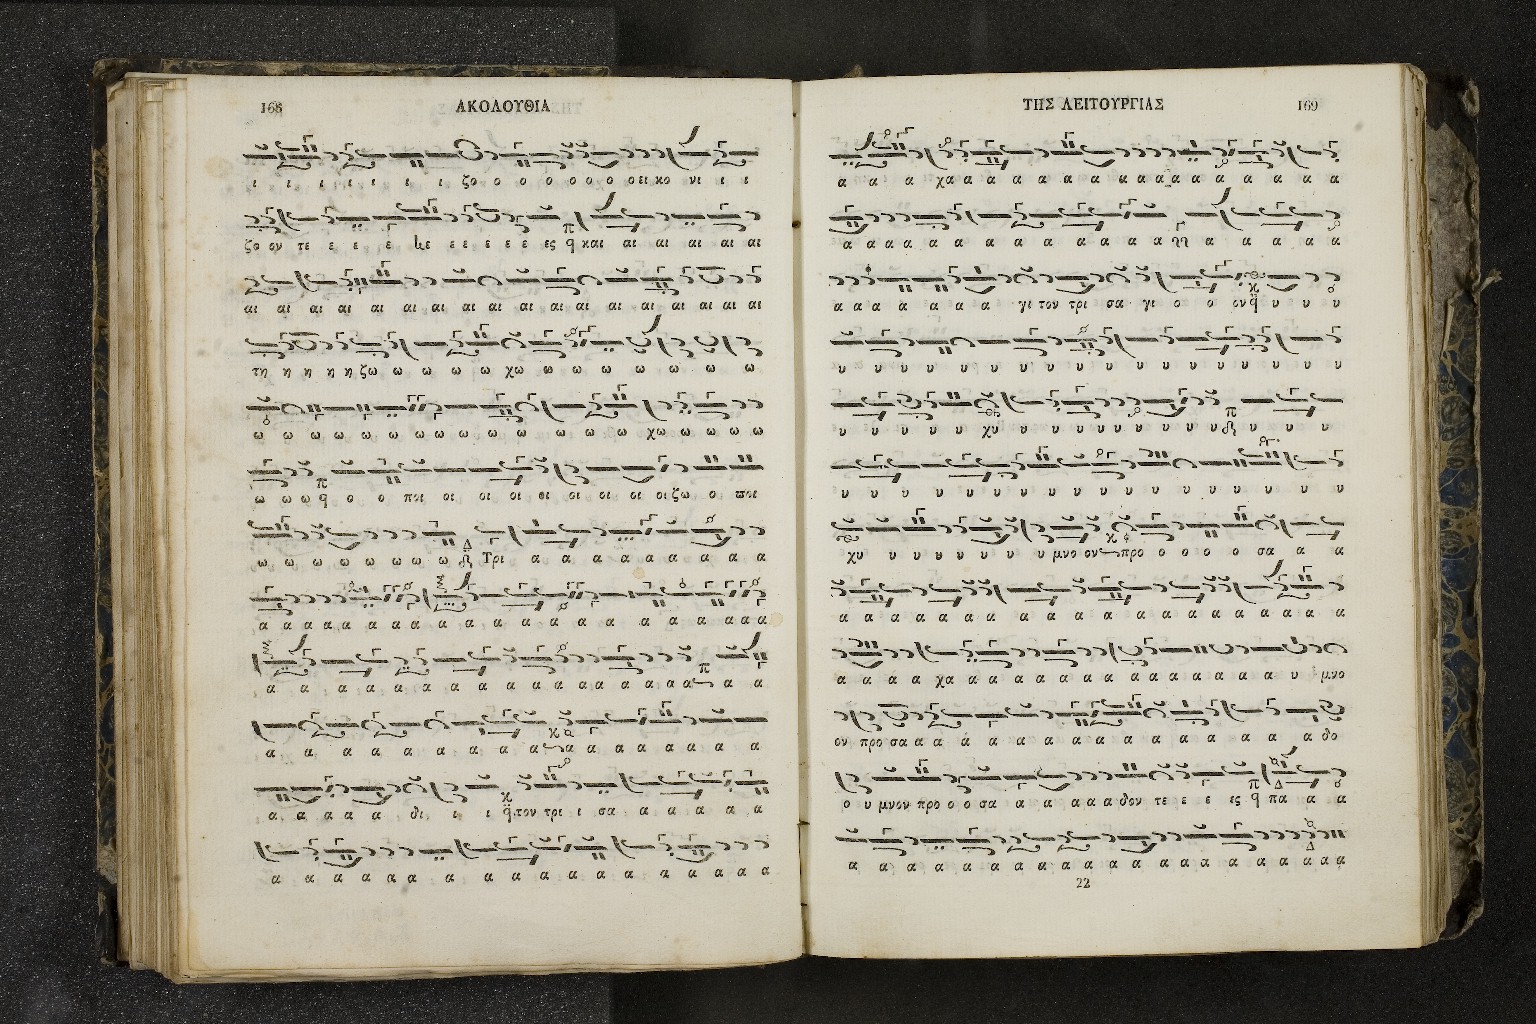 168 ΑΚΟΛΟΥΘΙΑ
ι ι ι ι ι ι ι ι ζο ο ο ο ο ο ο ο οει κο νι ι ι
ζο ον τε ε ε ε ε ε ε ε ε ες και αι αι αι αι αι
αι αι αι αι αι αι αι αι αι αι αι αι αι αι αι αι αι
τη η η η η ζω ω ω ω ω χω ω ω ω ω ω ω ω
ω ω ω ω ω ω ω ω ω ω ω ω ω ω χω ω ω ω ω
ω ω ω ο ο ποι οι οι οι οι οι οι οι οι ζω ο ποι
ω ω ω ω ω ω ω ω Τρι α α α α α α α α α
α α α α α α α α α α α α α α α α α α α α
α α α α α α α α α α α α α α α α α α α
α α α α α α α α α α α α α α α
α α α α α δι ι ι τον τρι ι σα α α α α α
α α α α α α α α α α α α α α α α
ΤΗΣ ΛΕΙΤΟΥΡΓΙΑΣ 169
α α α χα α α α α α α α α α α α α α α α
α α α α α α α α α α α α α α α α α α
α α α α α α α γι τον τρι σα γι ο ο ον υ υ υ
υ υ υ υ υ υ υ υ υ υ υ υ υ υ υ υ υ
υ υ υ υ υ χυ υ υ υ υ υ υ υ υ υ υ υ
υ υ υ υ υ υ υ υ υ υ υ υ υ υ υ υ υ
χυ υ υ υ υ υ υ υ υ μνο ον προ ο ο ο ο σα α α
α α α α α α α α α α α α α α α α α α
α α α α χα α α α α α α α α α α α α α α υ μνο
ον προ σα α α α α α α α α α α α α α α δο
ο υ μνον προ ο ο σα α α α α α δον τε ε ε ε ες πα α α
α α α α α α α α α α α α α α α α α α α α
22